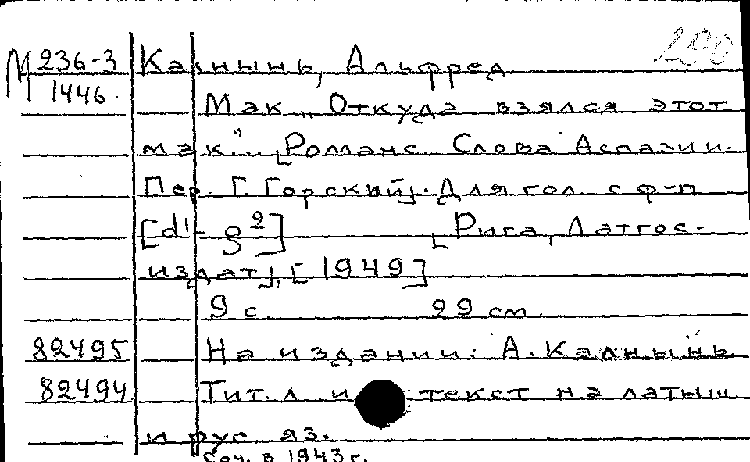 М 236-3 Калнынь, Альфред
1446. Мак „Откуда взялся этот
мак". [Романс. Слова Аспазии.
Пер. Г. Горский]. Для гол. с ф-п
[d¹- g²] [Рига, Латгос-
издат], [1949]
9 с. 29 см
82495 На издании: А. Калнынь
82494 Тит. л и текст на латыш
и рус яз.
Соч. в 1943 г.